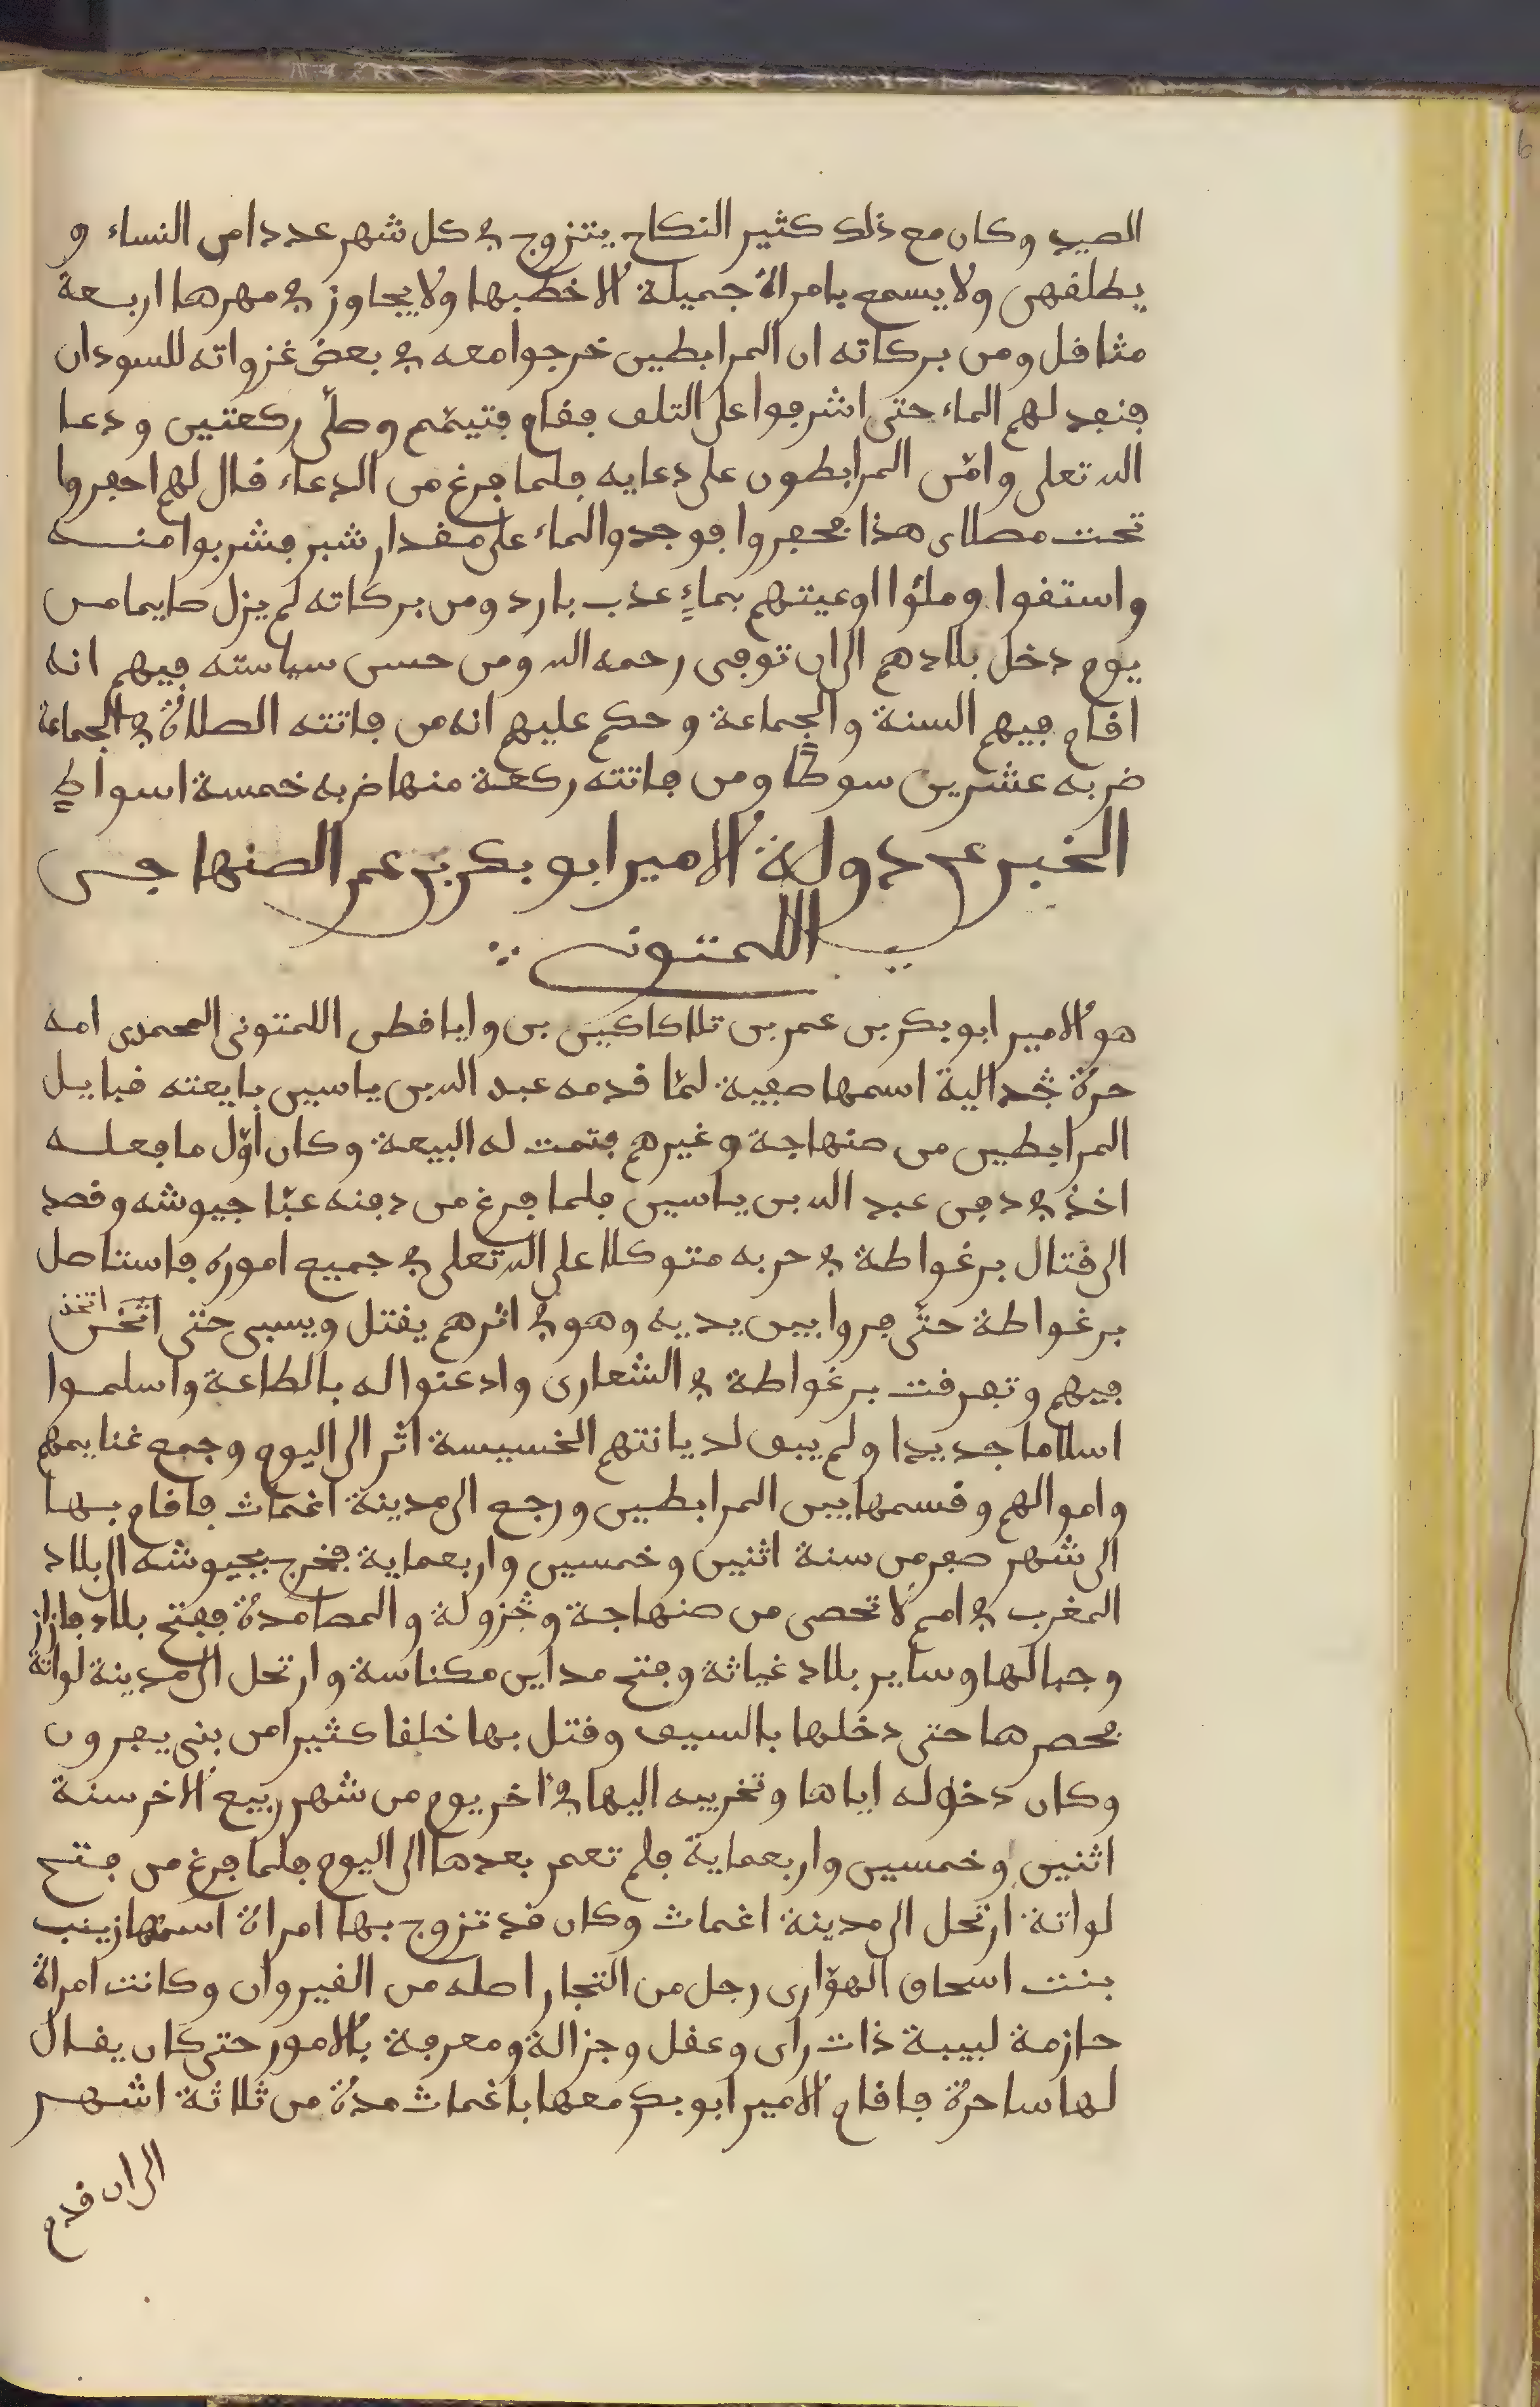 الصيد وكان مع ذلك كثير النكاح يتزوج في كل شهر عددا من النساء و
يطلقهن ولا يسمع بامراة جميلة الا خطبها ولا يجاوز في مهرها اربعة
مثاقل ومن بركاته ان المرابطين خرجوا معه في بعض غزواته للسودان
فنفد لهم الماء حتى اشرفوا على التلف فقام فتيمّم وصلّى ركعتين ودعا
الله تعلى وامّن المرابطون على دعايه فلما فرغ من الدعاء قال لهم احفروا
تحت مصلاى هذا فحفروا فوجدوا الماء على مقدار شبر فشربوا منه
واستقوا وملؤا اوعيتهم بماءٍ عذب بارد ومن بركاته لم يزل صايما من
يوم دخل بلادهم الى ان توفى رحمه الله ومن حسن سياسته فيهم انه
اقام فيهم السنة والجماعة وحكم عليهم انه من فاتته الصلاة في الجماعة
ضربه عشرين سوطًا ومن فاتته ركعة منها ضربه خمسة اسواطٍ
الخبر عن دولة الامير ابو بكر بن عمر الصنهاجي
اللمتوني
هو الامير ابو بكر بن عمر بن تلاكاكين بن وايافطن اللمتونى المحمدى امه
حرة جدالية اسمها صفية لمّا قدمه عبد الله بن ياسين بايعته قبايل
المرابطين من صنهاجة وغيرهم فتمت له البيعة وكان اوّل ما فعله
اخذ في دفن عبد الله بن ياسين فلما فرغ من دفنه عبّا جيوشه وقصد
الى قتال برغواطة في حربه متوكلا على الله تعلى في جميع اموره فاستاصل
برغواطة حتّى فروا بين يديه وهو في اثرهم يقتل ويسبى حتى اثخن اتخذ
فيهم وتفرقت برغواطة في الشعارى وادعنوا له بالطاعة واسلموا
اسلاما جديدا ولم يبق لديانتهم الخسيسة اثر الى اليوم وجمع غنايمهم
واموالهم وقسمها بين المرابطين ورجع الى مدينة اغمات فاقام بها
الى شهر صفر من سنة اثنين وخمسين واربعماية فخرج بجيوشه الى بلاد
المغرب في امم لا تحصى من صنهاجة وجزولة والمصامدة ففتح بلاد فازاز
وجبالها وساير بلاد غياثة وفتح مداين مكناسة وارتحل الى مدينة لواتة
فحصرها حتى دخلها بالسيف وقتل بها خلقا كثيرا من بنى يفرون
وكان دخوله اياها وتخريبه اليها في اخر يوم من شهر ربيع الاخر سنة
اثنين وخمسين واربعماية فلم تعمر بعدها الى اليوم فلما فرغ من فتح
لواتة ارتحل الى مدينة اغمات وكان قد تزوج بها امراة اسمها زينب
بنت اسحاق الهوّارى رجل من التجار اصله من القيروان وكانت امراة
حازمة لبيبة ذات راى وعقل وجزالة ومعرفة بالامور حتى كان يقال
لها ساحرة فاقام الامير ابو بكر معها باغمات مدة من ثلاثة اشهر
الى ان قدم